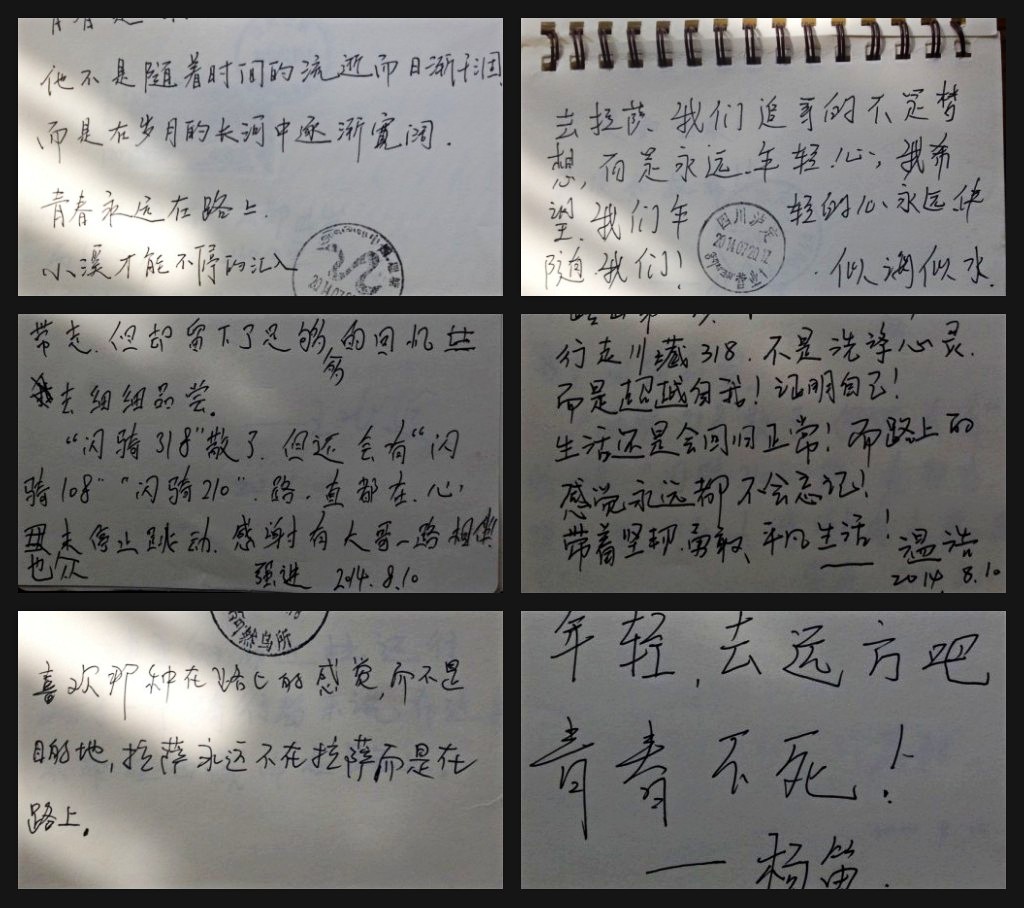 青春是
他不是随着时间的流逝而日渐干涸
而是在岁月的长河中逐渐宽阔.
青春永远在路上.
小溪才能不停的汇入
去拉萨.我们追寻的不是梦
想,而是永远年轻心,我希
望.我们年 轻的心永远伴
随我们!
四川泸定
2014.07.20.12
营业1
.似海似水.
但却留下了足够多的回忆
去细细品尝。
“闪骑318”散了.但还会有“闪
骑108”“闪骑210”.路.一直都在.心,
未停止跳动.感谢有大哥一路相伴
强进 2014.8.10
行走川藏318.不是洗涤心灵.
而是超越自我!证明自己!
生活还是会回归正常!而路上的
感觉永远都不会忘记!
带着坚韧.勇敢.平凡生活!
——温浩
2014 8.10
然乌所
喜欢那种在路上的感觉,而不是
目的地,拉萨永远不在拉萨而是在
路上。
年轻,去远方吧
青春不死!
——杨笛.